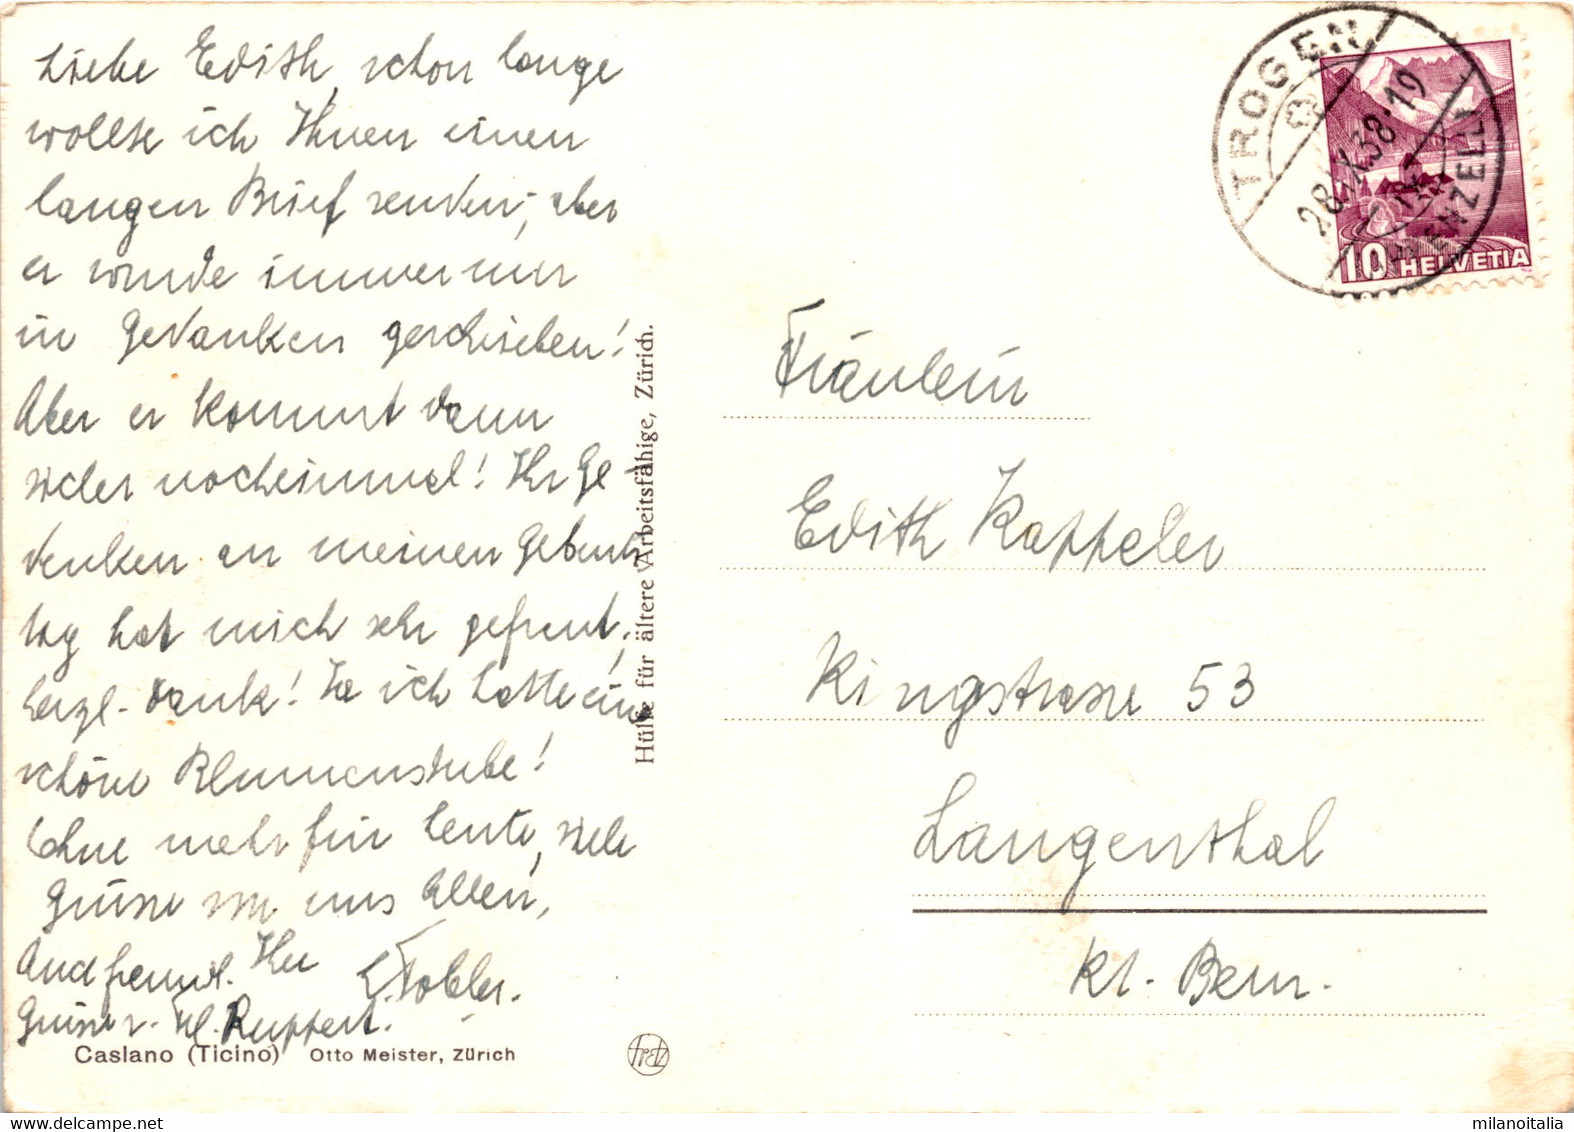 Liebe Edith, schon lange
wollte ich Ihnen einen
langen Brief senden, aber
er wurde immer nur
in Gedanken geschrieben!
Aber er kommt dann
sicher nocheinmal! Ihr Ge-
denken an meinen Geburts
tag hat mich sehr gefreut,
herzl. Dank! Ja ich hatte eine
schöne Blumenstube!
Ohne mehr für heute, viele
Grüsse von uns Allen,
Ihre
L. Tobler.
Auch freundl.
Grüsse v. Ruppert.
Caslano (Ticino) Otto Meister, Zürich
Hülfe für ältere Arbeitsfähige, Zürich.
TROGEN
28.IX.38·19
10 HELVETIA
Fräulein
Edith Kappeler
Ringstrasse 53
Langenthal
Kt. Bern.
milanoitalia